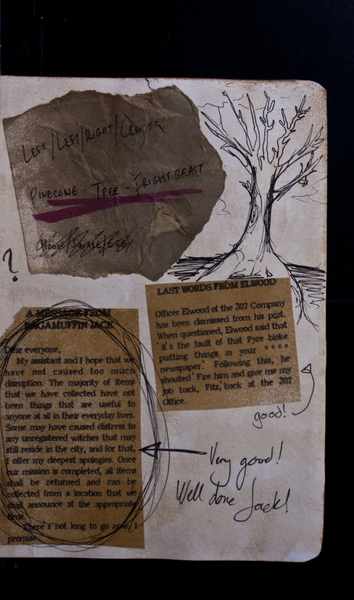 LEFT/LEFT/RIGHT/CENTER
PINECONE - TREE - FRIGHT BEAST
?
A MESSAGE FROM
RAGAMUFFIN JACK
Dear everyone,
My assistant and I hope that we
have not caused too much
disruption. The majority of items
that we have collected have not
been things that are useful to
anyone at all in their everyday lives.
Some may have caused distress to
any unregistered witches that may
still reside in the city, and for that,
I offer my deepest apologies. Once
our mission is completed, all items
shall be returned and can be
collected from a location that we
shall announce at the appropriate
time.
There's not long to go now, I
promise.
LAST WORDS FROM ELWOOD
Officer Elwood of the 307 Company
has been dismissed from his post.
When questioned, Elwood said that
'it's the fault of that Pyre bloke
putting things in your ****
newspaper.' Following this, he
shouted 'Fire him and give me my
job back, Fitz,' back at the 307
Office.
good!
Very good!
Well done Jack!